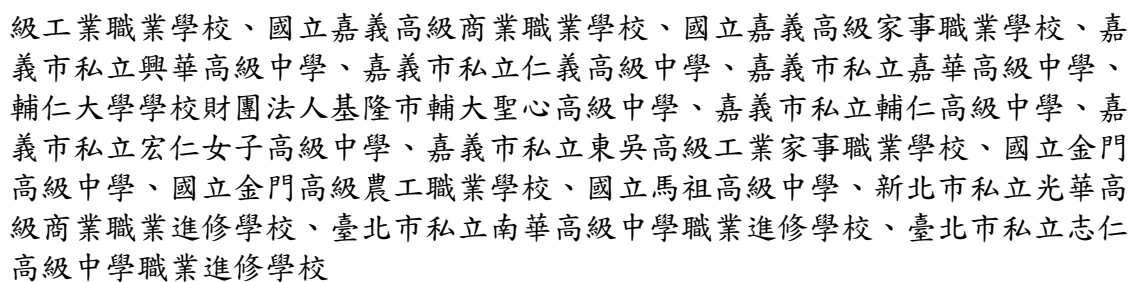 級工業職業學校、國立嘉義高級商業職業學校、國立嘉義高級家事職業學校、嘉
義市私立興華高級中學、嘉義市私立仁義高級中學、嘉義市私立嘉華高級中學、
輔仁大學學校財團法人基隆市輔大聖心高級中學、嘉義市私立輔仁高級中學、嘉
義市私立宏仁女子高級中學、嘉義市私立東吳高級工業家事職業學校、國立金門
高級中學、國立金門高級農工職業學校、國立馬祖高級中學、新北市私立光華高
級商業職業進修學校、臺北市私立南華高級中學職業進修學校、臺北市私立志仁
高級中學職業進修學校